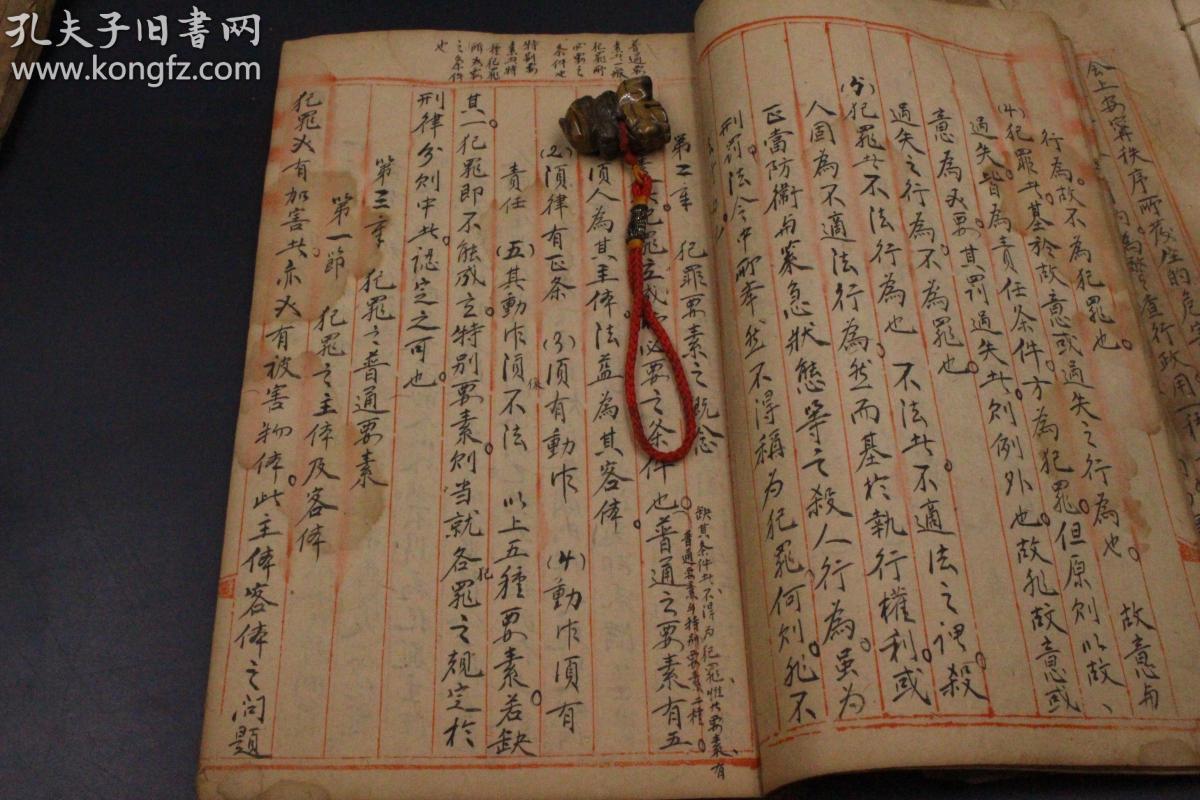 孔夫子旧书网
www.kongfz.com
行為。故不為犯罪也。 故意与
(4)犯罪者。基於故意或過失之行為也。
過失。皆為責任条件。方為犯罪。但原則以故
意為必要。其罰過失者。則例外也。故非故意或
過失之行為。不為罪也。
(5)犯罪者不法行為也 不法者。不適法之謂。殺
人固為不適法行為。然而基於執行權利。或
正當防衛与緊急狀態等之殺人行為。虽為
刑罰法令中所奉。然不得稱為犯罪。何則。非不
第二章 犯罪要素之既念
必要之条件也。普通之要素有五
缺其条件者。不得为犯罪。惟此要素。有
普通要素与特別要素二種。
須人為其主体。法益為其客体。
(2)須律有正条 (3)須有動作 (4)動作須有
責任 (五)其動作須不法 以上五種要素。若缺
其一。犯罪即不能成立。特別要素。則当就各犯罪之規定於
刑律分則中者。認定之可也。
第三章 犯罪之普通要素
第一節 犯罪之主体及客体
犯罪必有加害者。亦必有被害物体。此主体客体之问題
普通要
素者一般
犯罪所
必要之
条件也
特別要
素者特
種犯罪
所為要
之条件
也
会上安寧秩序所